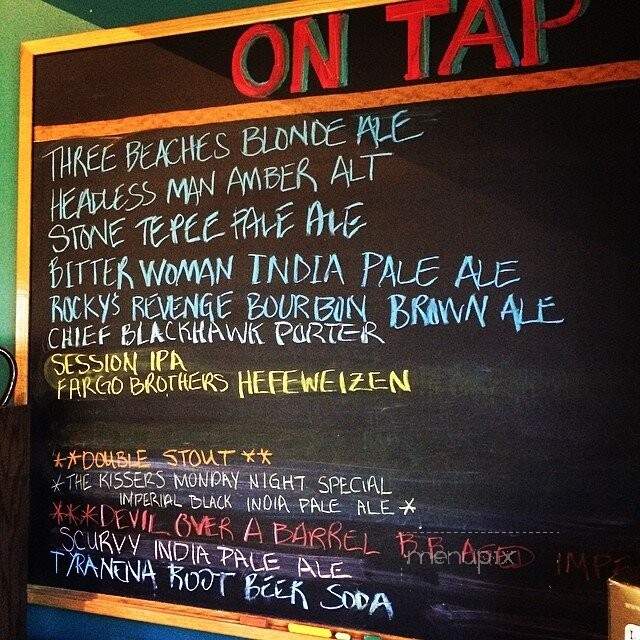 ON TAP
THREE BEACHES BLONDE ALE
HEADLESS MAN AMBER ALT
STONE TEPEE PALE ALE
BITTER WOMAN INDIA PALE ALE
ROCKY'S REVENGE BOURBON BROWN ALE
CHIEF BLACKHAWK PORTER
SESSION IPA
FARGO BROTHERS HEFEWEIZEN
**DOUBLE STOUT**
*THE KISSERS MONDAY NIGHT SPECIAL
IMPERIAL BLACK INDIA PALE ALE*
***DEVIL OVER A BARREL B.B AGED IMPE
SCURVY INDIA PALE ALE
TYRANENA ROOT BEER SODA
menupix